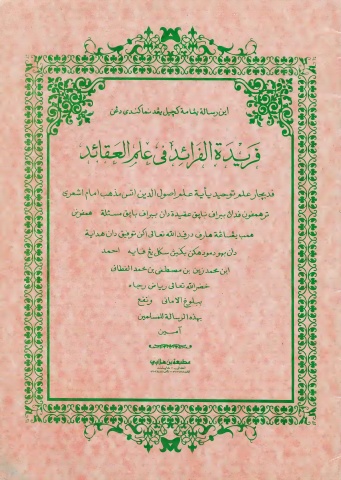 اين رسالة يڠ امة كچيل يڠد نماكندي دڠن
فريدة الفرائد في علم العقائد
قد بچار علم توحيد يأيت علم اصول الدين اتس مذهب امام اشعري
ترهمفون فدان بيراف بايق عقيدة دان بيراف بايق مسئلة
همب يڠ هارف درفد الله تعالى اكن توفيق دان هداية
دان مودهكن بكين سكل يڠ احمد
ابن محمد زين بن مصطفى بن محمد الفطاني
الله تعالى رياض رجاء
ببلوغ الاماني ونفع
بهذه الرسالة المسلمين
آمين